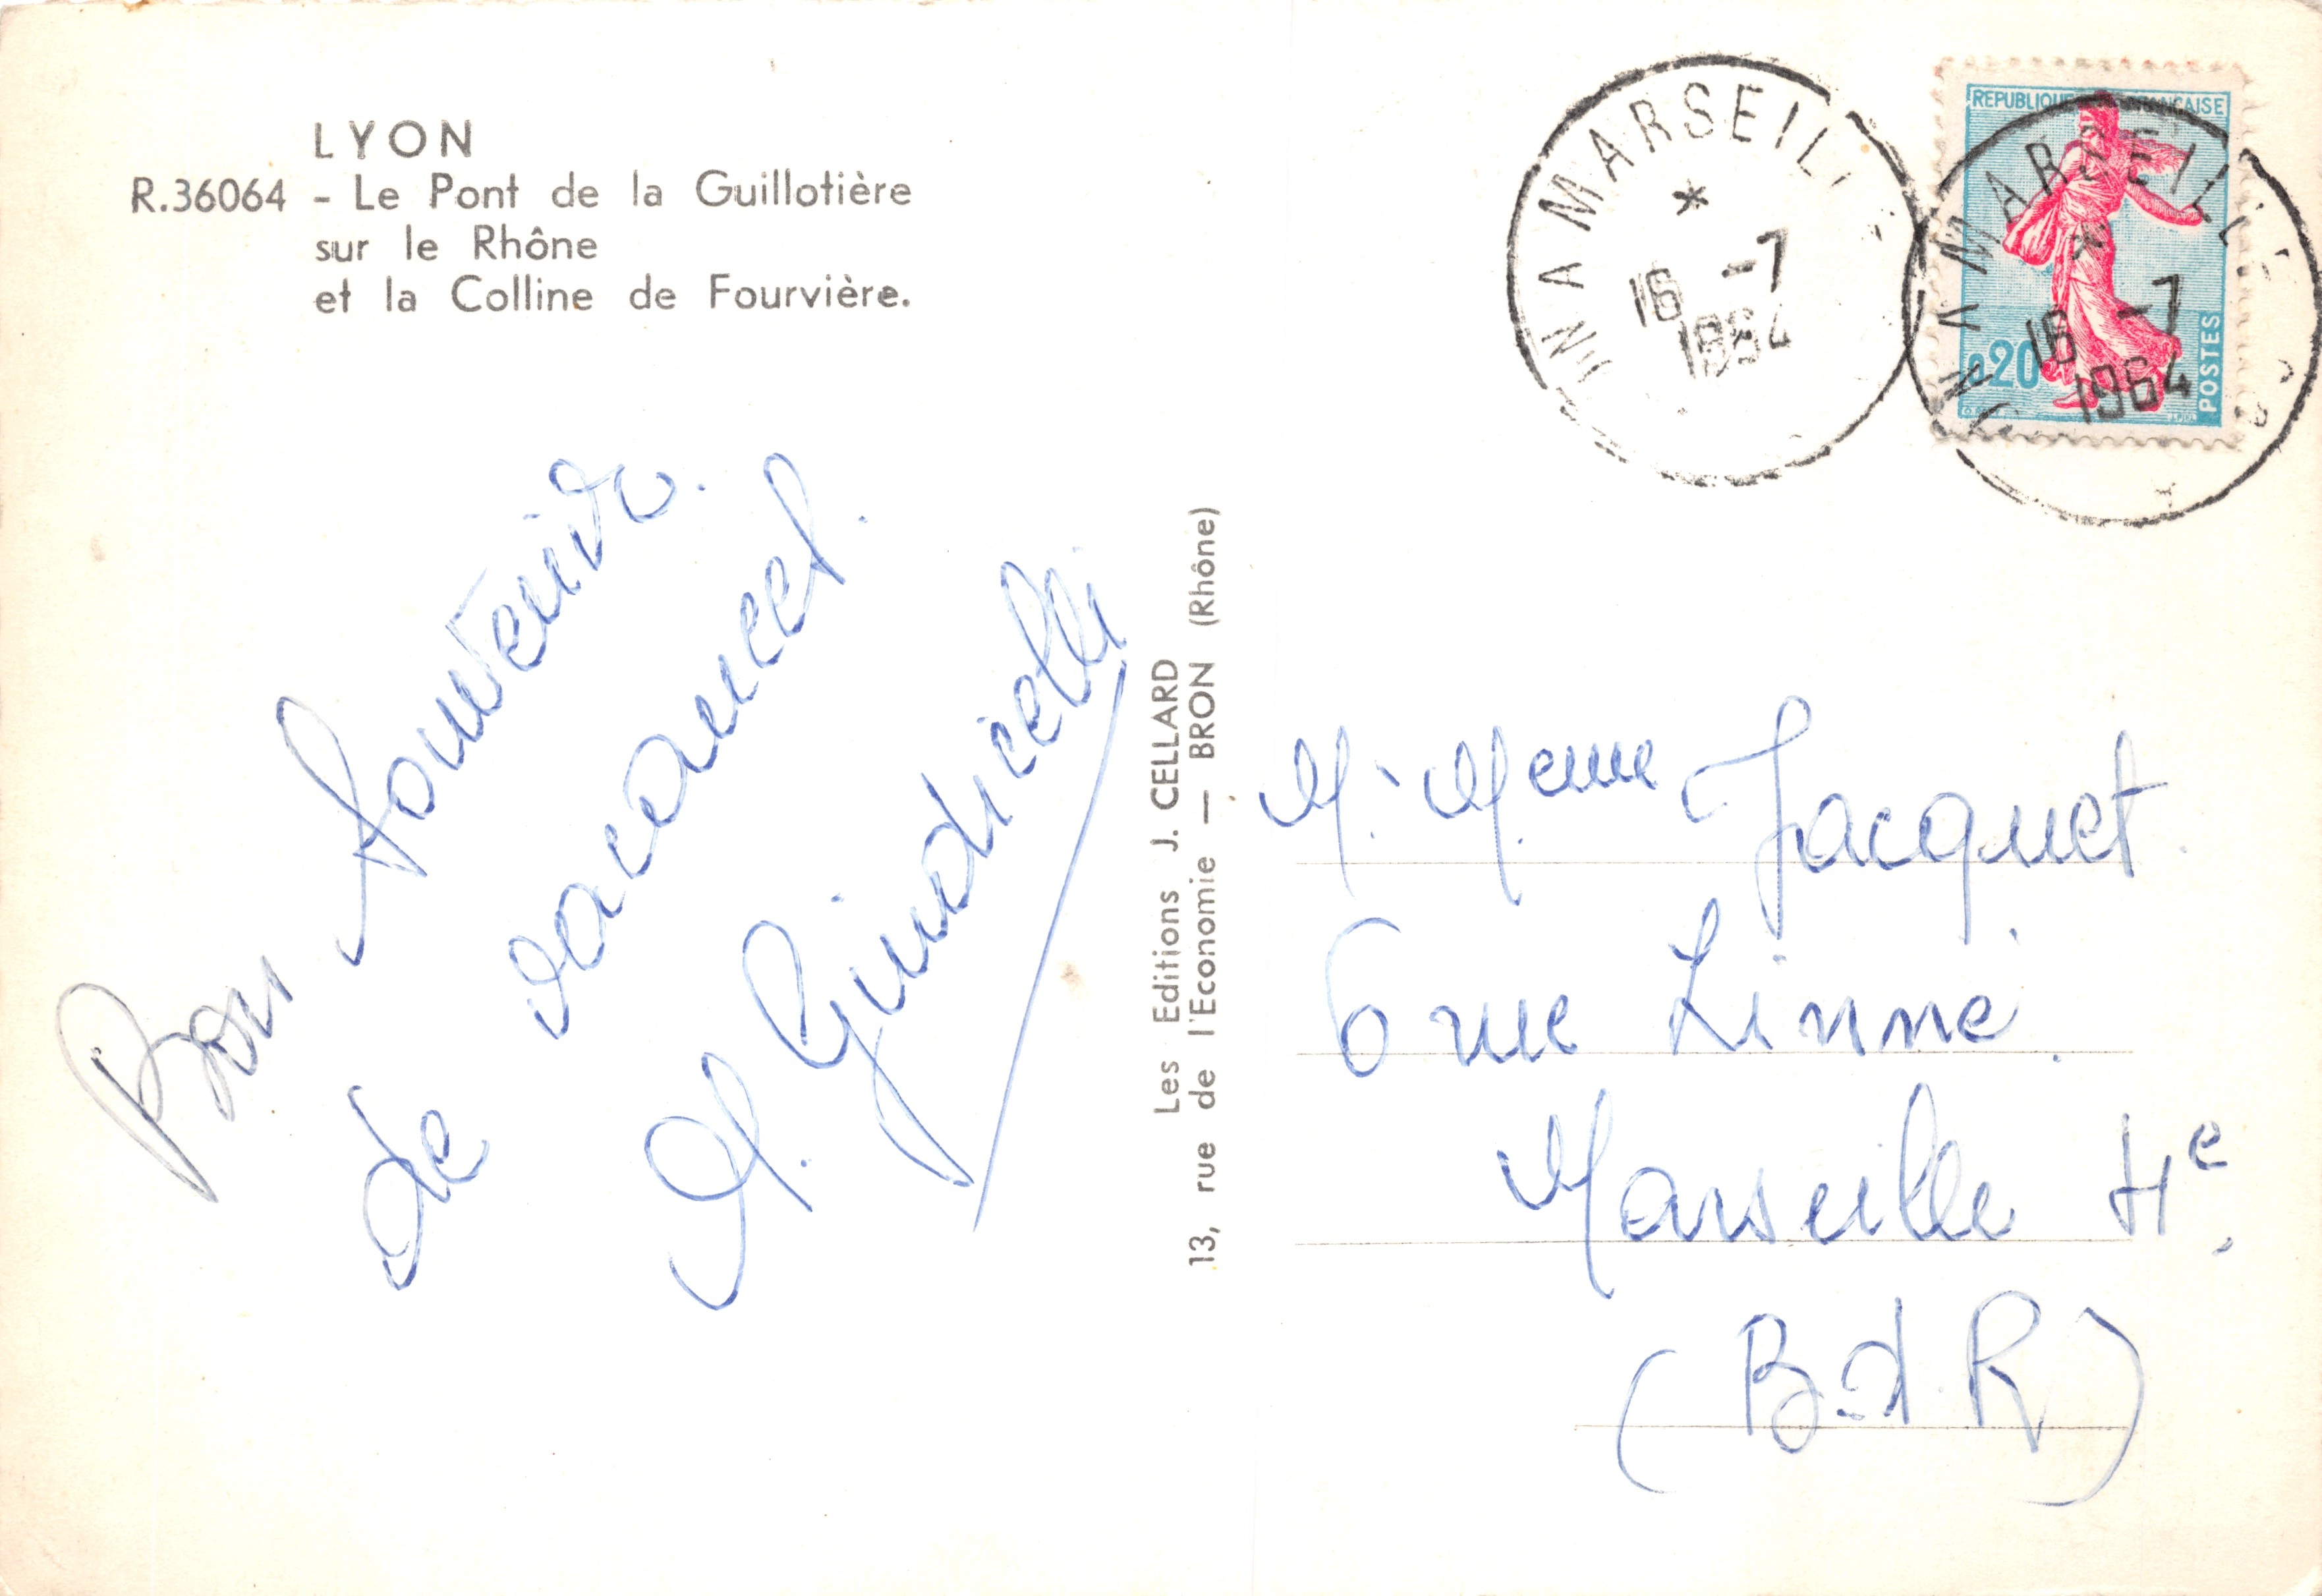 LYON
R.36064 - Le Pont de la Guillotière
sur le Rhône
et la Colline de Fourvière.
Bon souvenir.
de vacances.
M. Giudicelli
Les Editions J. CELLARD
13, rue de l'Economie — BRON (Rhône)
MARSEILL
*
16 -7
1964
REPUBLIQUE FRANÇAISE
0,20
POSTES
MARSEILLE
*
16 -7
1964
M. Meme Jacquet.
6 rue Linné.
Marseille 4e.
(B.d.R)